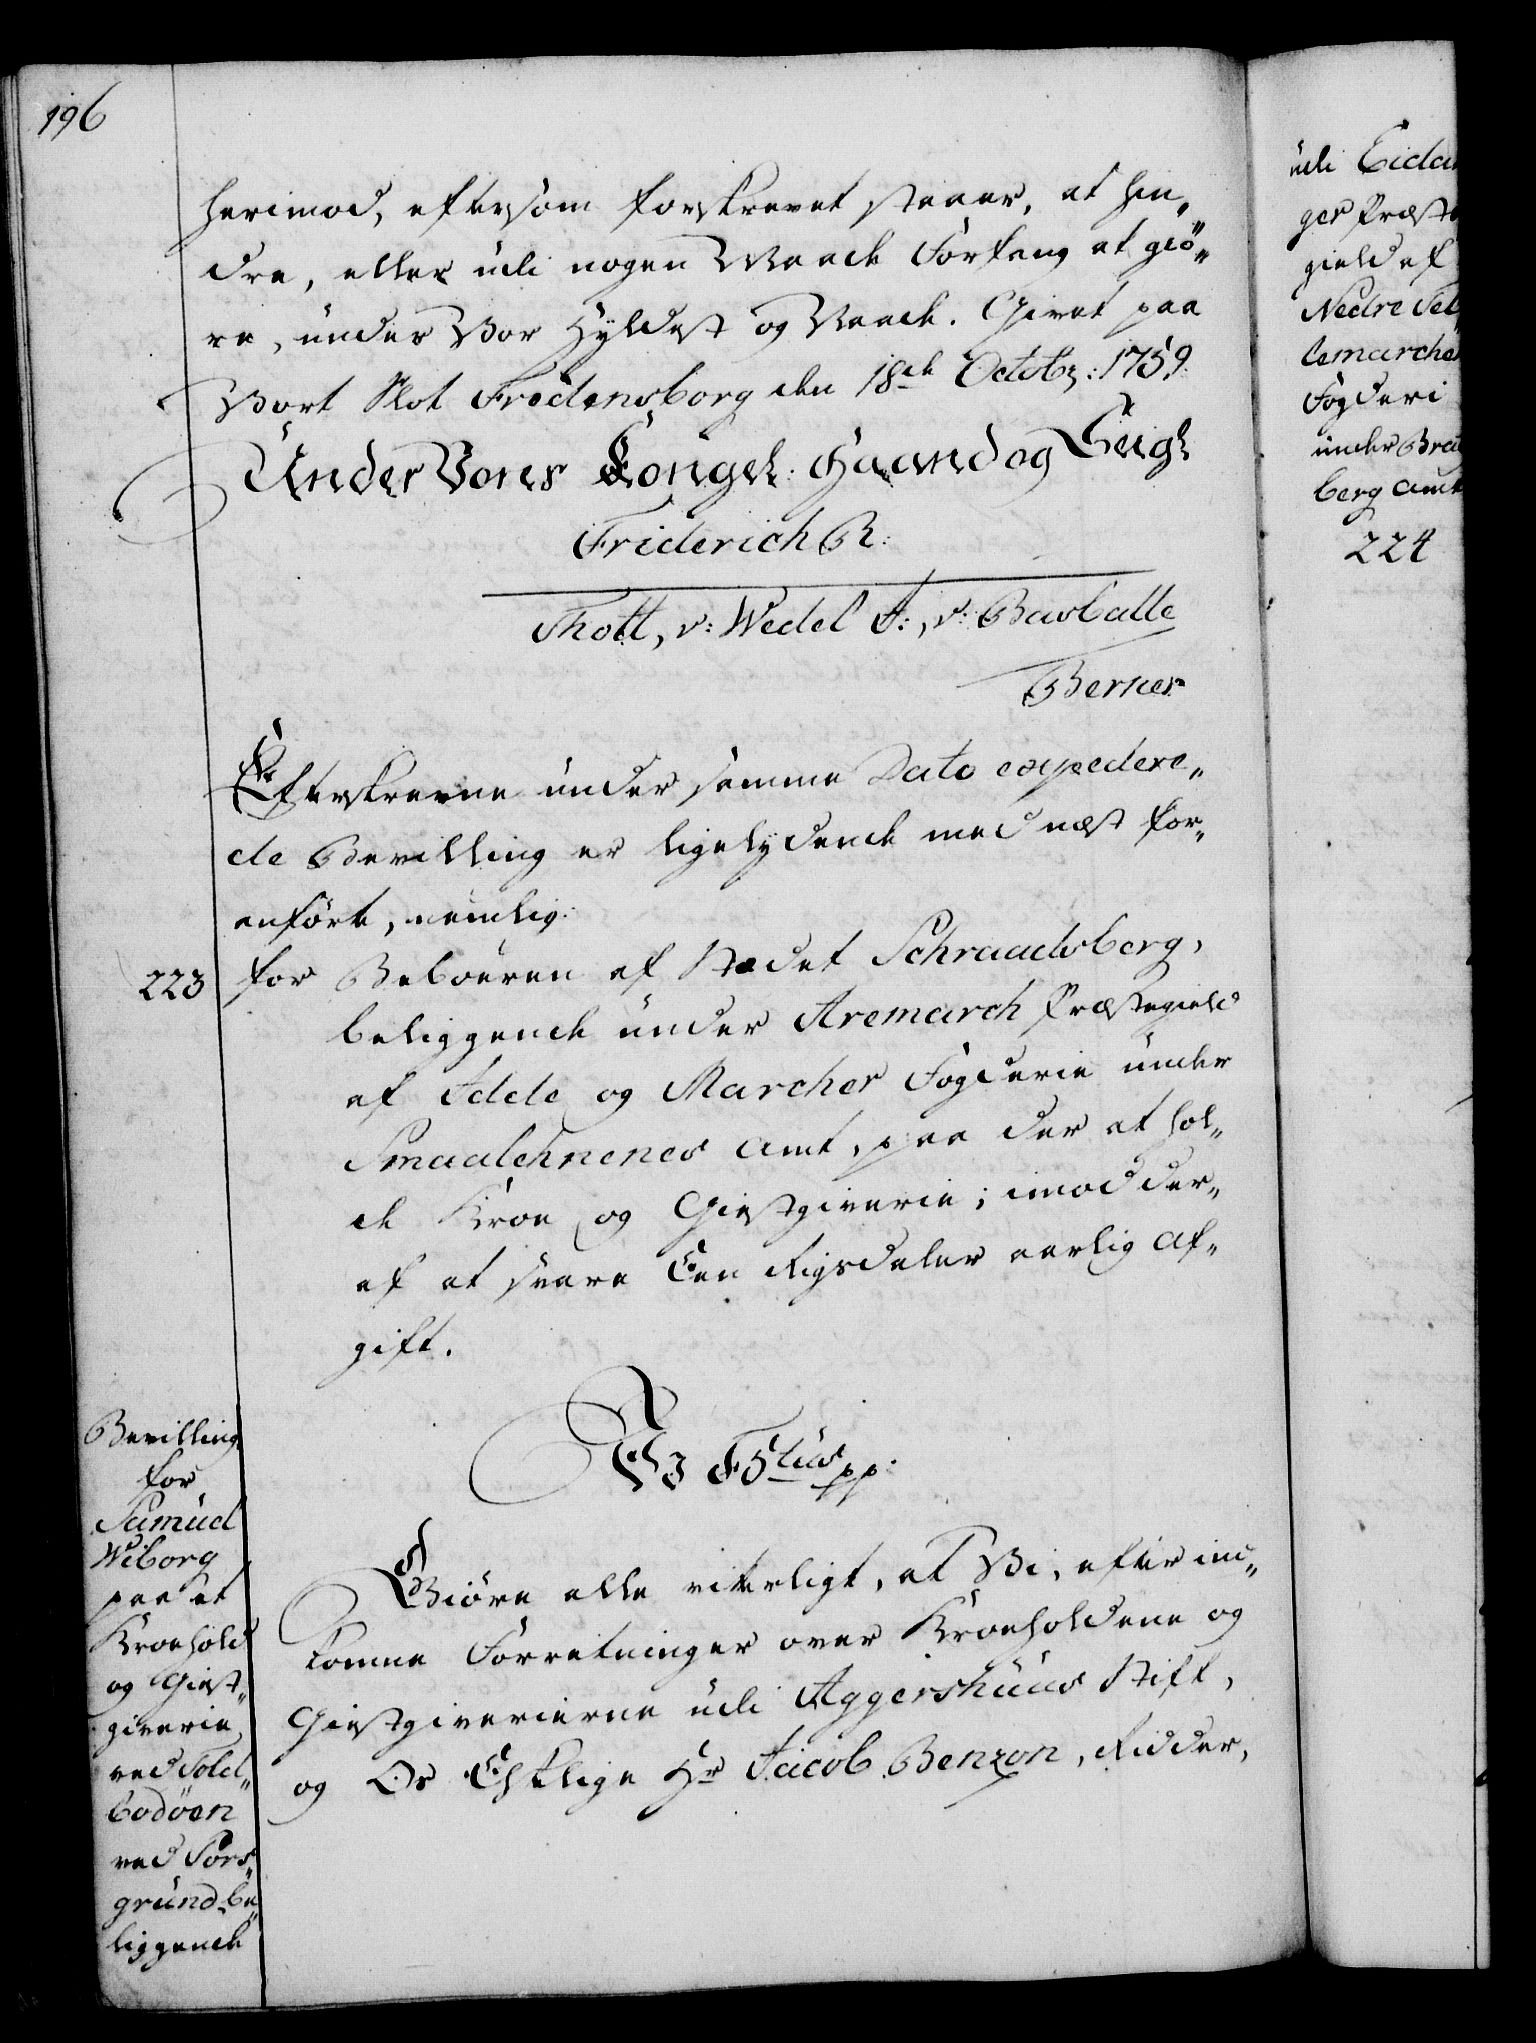 196
herimod, eftersom forskrevet staaer, at hin„
dre, eller udi nogen Maade Forfang at giö„
re, under Vor Hyldest og Naade. Givet paa
Vort Slot Fredensborg den 18de Octobr: 1759.
Under Vores Kongel: Haand og Seigl
Friderich R:
Thott, v: Wedel F:, v: Barballe
Berner
Efterskrevne under samme Dato expedere„
de Bevilling er ligelydende med næst for„
anförte, nemlig:
223 for Beboeren af Stædet Schraadsberg,
beliggende under Aremarch Præstegield
af Idde og Marcher Fogderie under
Smaalehnenes Amt, paa der at hol„
de Kroe og Giestgiverie; imod der„
af at svare Een Rigsdaler aarlig Af„
gift.
Bevilling
for
Samuel
Wiborg
paa et
Kroehold
og Giest„
giverie
ved Told„
bodöen
ved Pors„
grund be„
liggende
Vi F5tus pp:
Giöre alle vitterligt, at Vi, efter ind„
komne Forretninger over Kroeholdene og
Giestgiverierne udi Aggershuus Stift,
og Os Elskelige Hr Jacob Benzon, Ridder,
udi Eidan
ger Præste
gield af
Nedre Tel„
lemarchen
Fogderi
under Brat
berg Amt
224